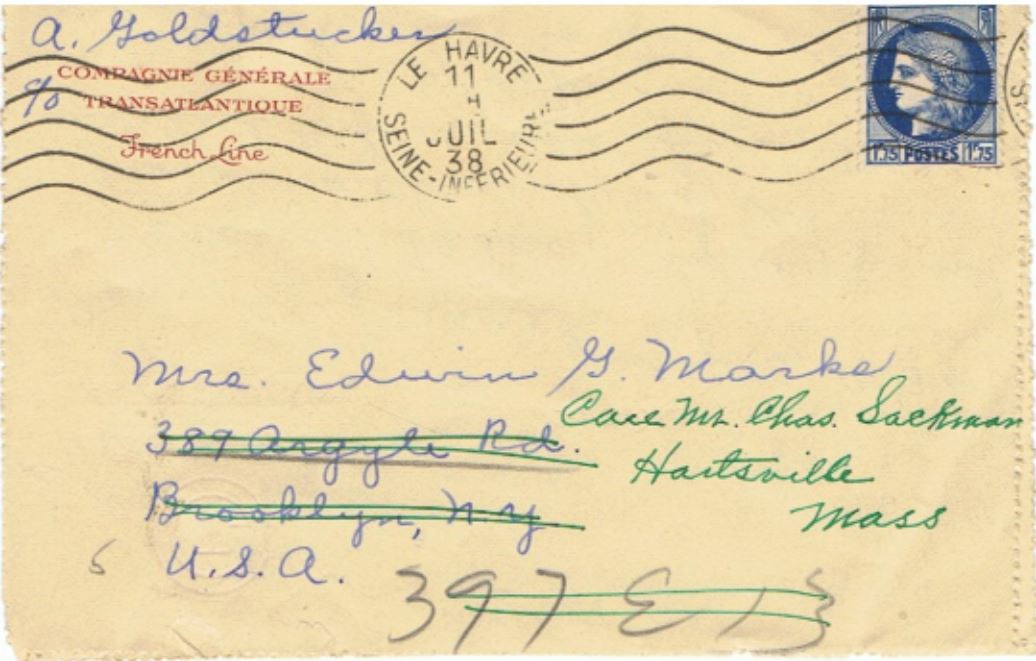 A. Goldstucker
COMPAGNIE GÉNÉRALE
c/o TRANSATLANTIQUE
French Line
LE HAVRE
11
JUIL
38
SEINE-INFERIEURE
1F75 POSTES 1F75
Mrs. Edwin G. Marks
Care Mr. Chas. Sackman
389 Argyle Rd.
Hartsville
Brooklyn, N.Y.
Mass
U.S.A.
397 E 13